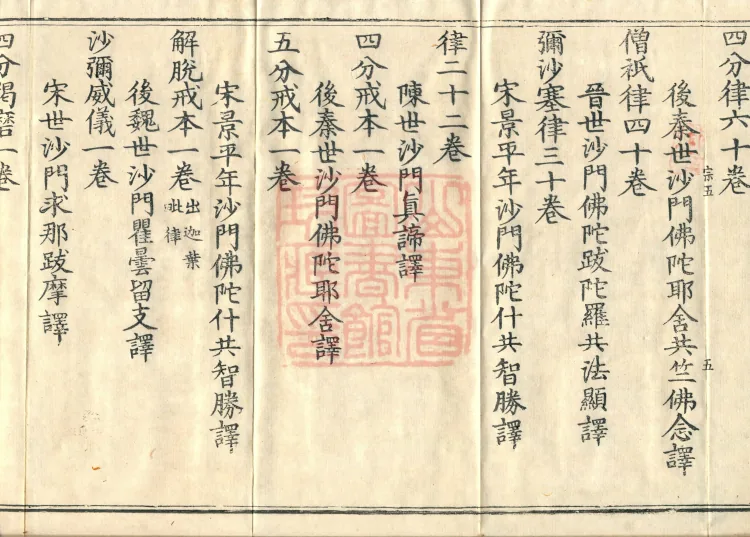 四分律六十卷
後秦世沙門佛陀耶舍共竺佛念譯
宗五
五
僧祇律四十卷
晉世沙門佛陀跋陀羅共法顯譯
彌沙塞律三十卷
宋景平年沙門佛陀什共智勝譯
律二十二卷
陳世沙門眞諦譯
四分戒本一卷
後秦世沙門佛陀耶舍譯
五分戒本一卷
宋景平年沙門佛陀什共智勝譯
解脫戒本一卷
出迦葉
毗律
後魏世沙門瞿曇留支譯
沙彌威儀一卷
宋世沙門求那跋摩譯
四分羯磨一卷
山東省
圖書館
藏印